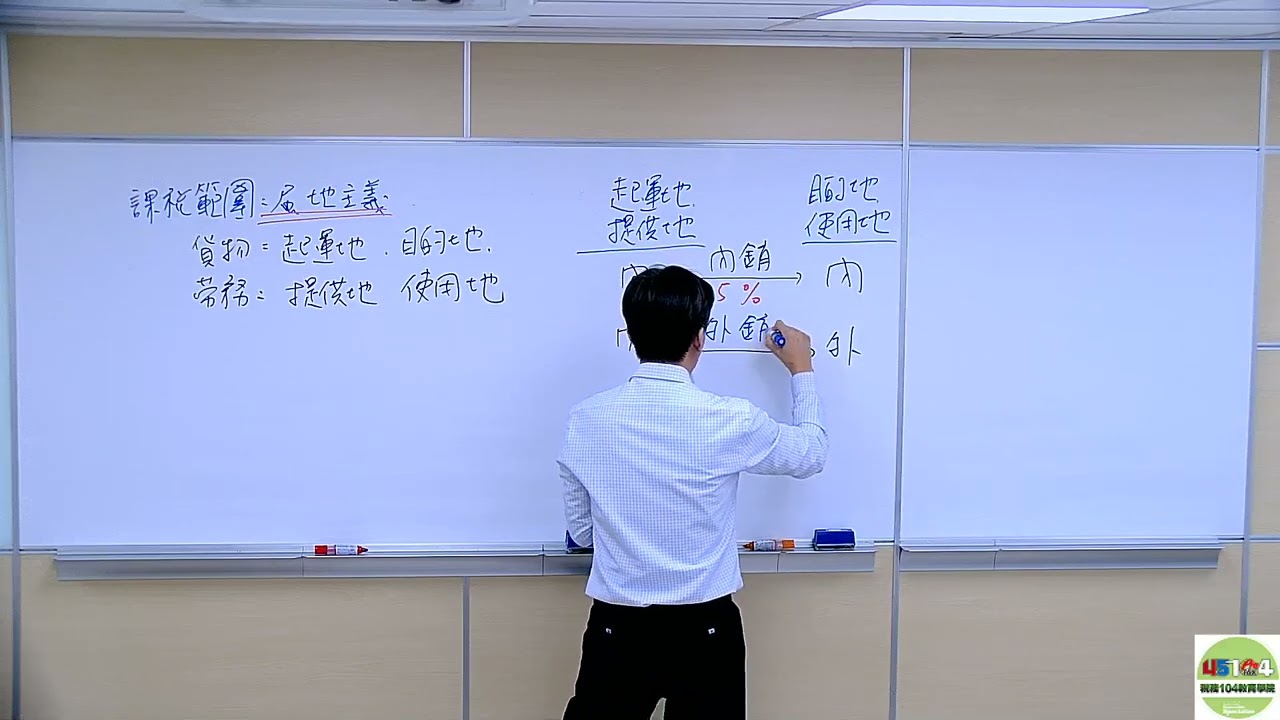 課稅範圍:屬地主義
貨物=起運地、目的地.
勞務=提供地 使用地
起運地 目的地
提供地 使用地
內 內銷 內
5%
內 外銷 外
稅務104教育學院